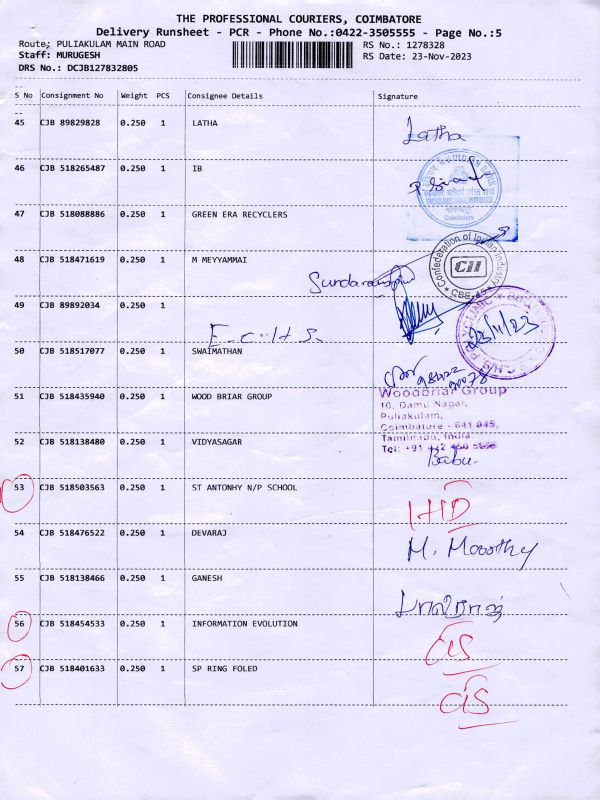 THE PROFESSIONAL COURIERS, COIMBATORE
Delivery Runsheet - PCR - Phone No.:0422-3505555 - Page No.:5
Route: PULIAKULAM MAIN ROAD RS No.: 1278328
Staff: MURUGESH RS Date: 23-Nov-2023
DRS No.: DCJB127832805
S No Consignment No Weight PCS Consignee Details Signature
45 CJB 89829828 0.250 1 LATHA
Latha
46 CJB 518265487 0.250 1 IB
Coimbatore
47 CJB 518088886 0.250 1 GREEN ERA RECYCLERS
48 CJB 518471619 0.250 1 M MEYYAMMAI
Confederation of Indian Industry
CII
49 CJB 89892034 0.250 1
23/11/23
50 CJB 518517077 0.250 1 SWAIMATHAN
51 CJB 518435940 0.250 1 WOOD BRIAR GROUP
Woodbriar Group
10, Damu Nagar,
Puliakulam,
Coimbatore - 641 045,
Tamilnadu, India.
Tel: +91
52 CJB 518138480 0.250 1 VIDYASAGAR
Babu.
53 CJB 518503563 0.250 1 ST ANTONHY N/P SCHOOL
54 CJB 518476522 0.250 1 DEVARAJ
M. Moorthy
55 CJB 518138466 0.250 1 GANESH
56 CJB 518454533 0.250 1 INFORMATION EVOLUTION
57 CJB 518401633 0.250 1 SP RING FOLED